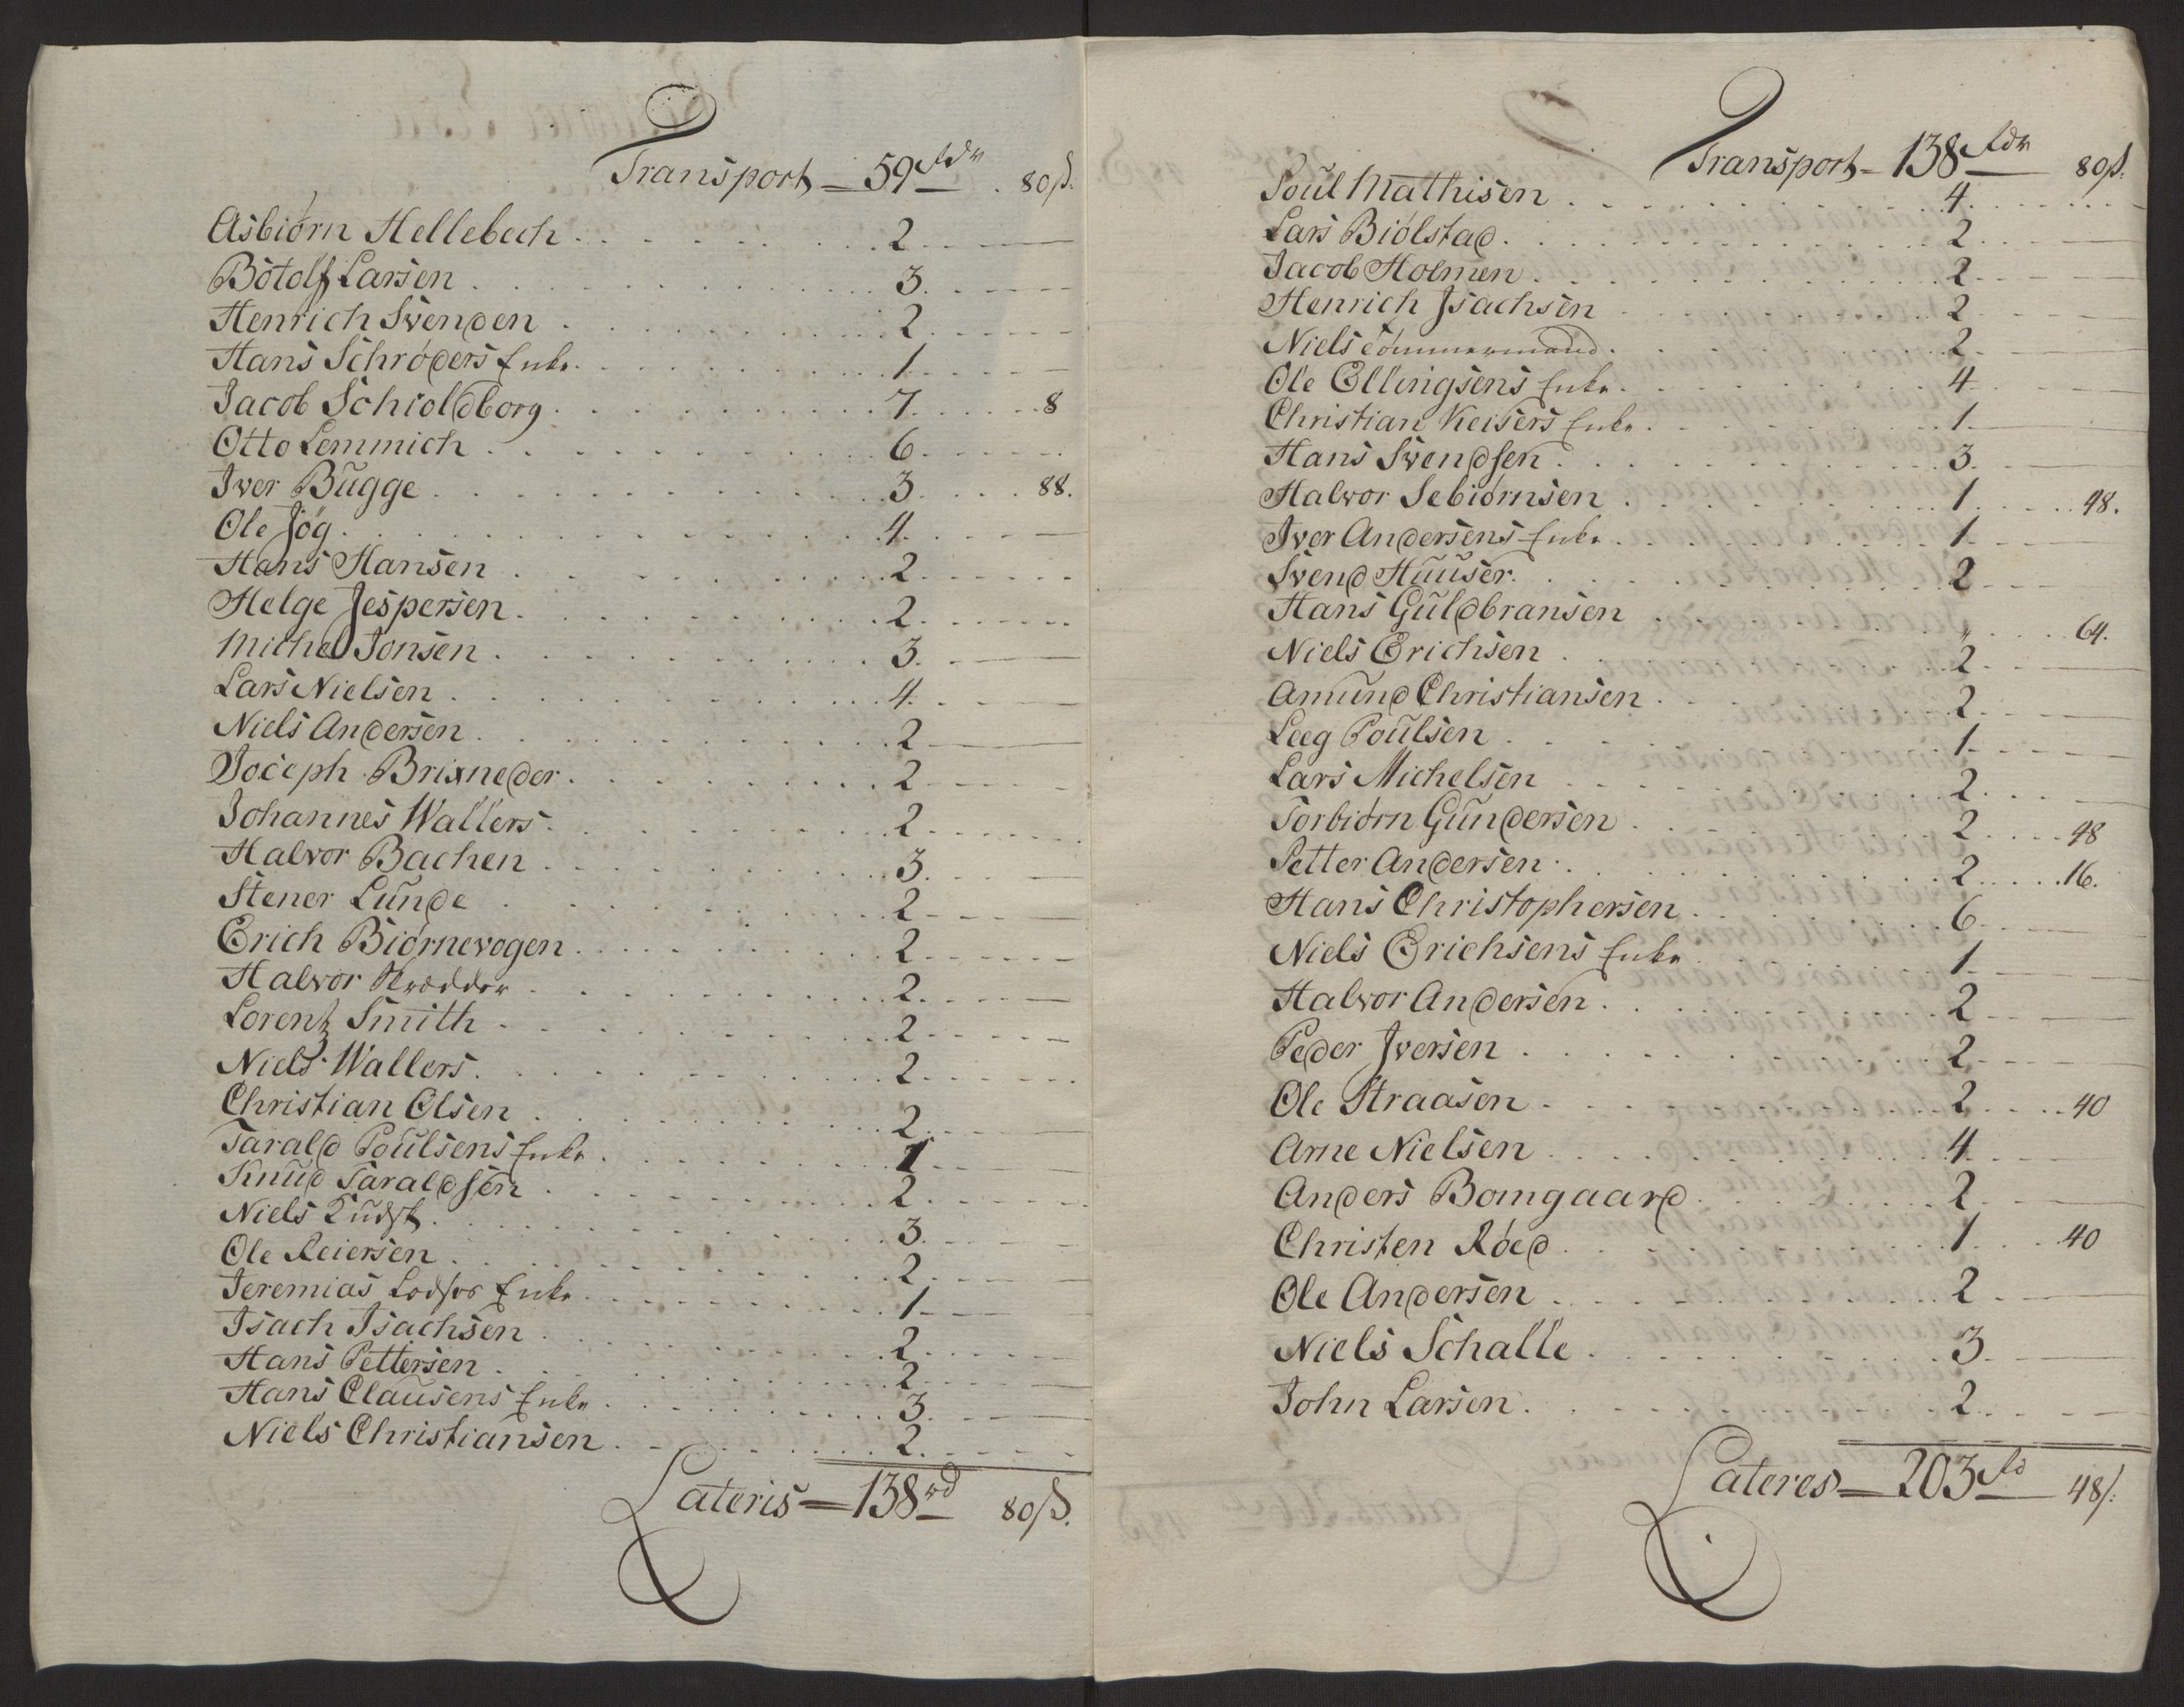 Transport = 59 Rdr . 80 ß.
Asbiørn Hellebech . . . 2
Botolf Larsen . . . 3
Henrich Svenden . . . 2
Hans Schrøders Enke . . . 1
Jacob Schioldborg . . . 7 . . . 8
Otto Lemmich . . . 6
Iver Bugge . . . 3 . . . 88.
Ole Jøg . . . 4
Hans Hansen . . . 2
Helge Jespersen . . . 2
Michel Jonsen . . . 3
Lars Nielsen . . . 4
Niels Andersen . . . 2
Joceph Brixneder . . . 2
Johannes Wallers . . . 2
Halvor Bachen . . . 3
Stener Lunde . . . 2
Erich Biørnevogen . . . 2
Halvor Skrædder . . . 2
Lorentz Smith . . . 2
Niels Wallers . . . 2
Christian Olsen . . . 2
Tarald Poulsens Enke . . . 1
Knud Taraldsen . . . 2
Niels . . . 3
Ole Reiersen . . . 2
Jeremias Lodsos Enke . . . 1
Isach Isachsen . . . 2
Hans Pettersen . . . 2
Hans Clausens Enke . . . 3
Niels Christiansen . . . 2
Lateris = 138 rd 80 ß.
Transport = 138 Rdr 80 ß.
Poul Mathisen . . . 4
Lars Biølstad . . . 2
Jacob Holmen . . . 2
Henrich Isachsen . . . 2
Niels Tømmermand . . . 2
Ole Ellingsens Enke . . . 4
Christian Keisers Enke . . . 1
Hans Svendsen . . . 3
Halvor Sebiørnsen . . . 1 . . . 48.
Iver Andersens Enke . . . 1
Svend Huuser . . . 2
Hans Guldbransen . . . " . . . 64.
Niels Erichsen . . . 2
Amund Christiansen . . . 2
Leeg Poulsen . . . 1
Lars Michelsen . . . 2
Torbiørn Gundersen . . . 2 . . . 48
Petter Andersen . . . 2 . . . 16.
Hans Christophersen . . . 6
Niels Erichsens Enke . . . 1
Halvor Andersen . . . 2
Peder Iversen . . . 2
Ole Straasen . . . 2 . . . 40
Arne Nielsen . . . 4
Anders Bomgaard . . . 2
Christen Røed . . . 1 . . . 40
Ole Andersen . . . 2
Niels Schalle . . . 3
John Larsen . . . 2
Lateres = 203 Rd 48 ß.